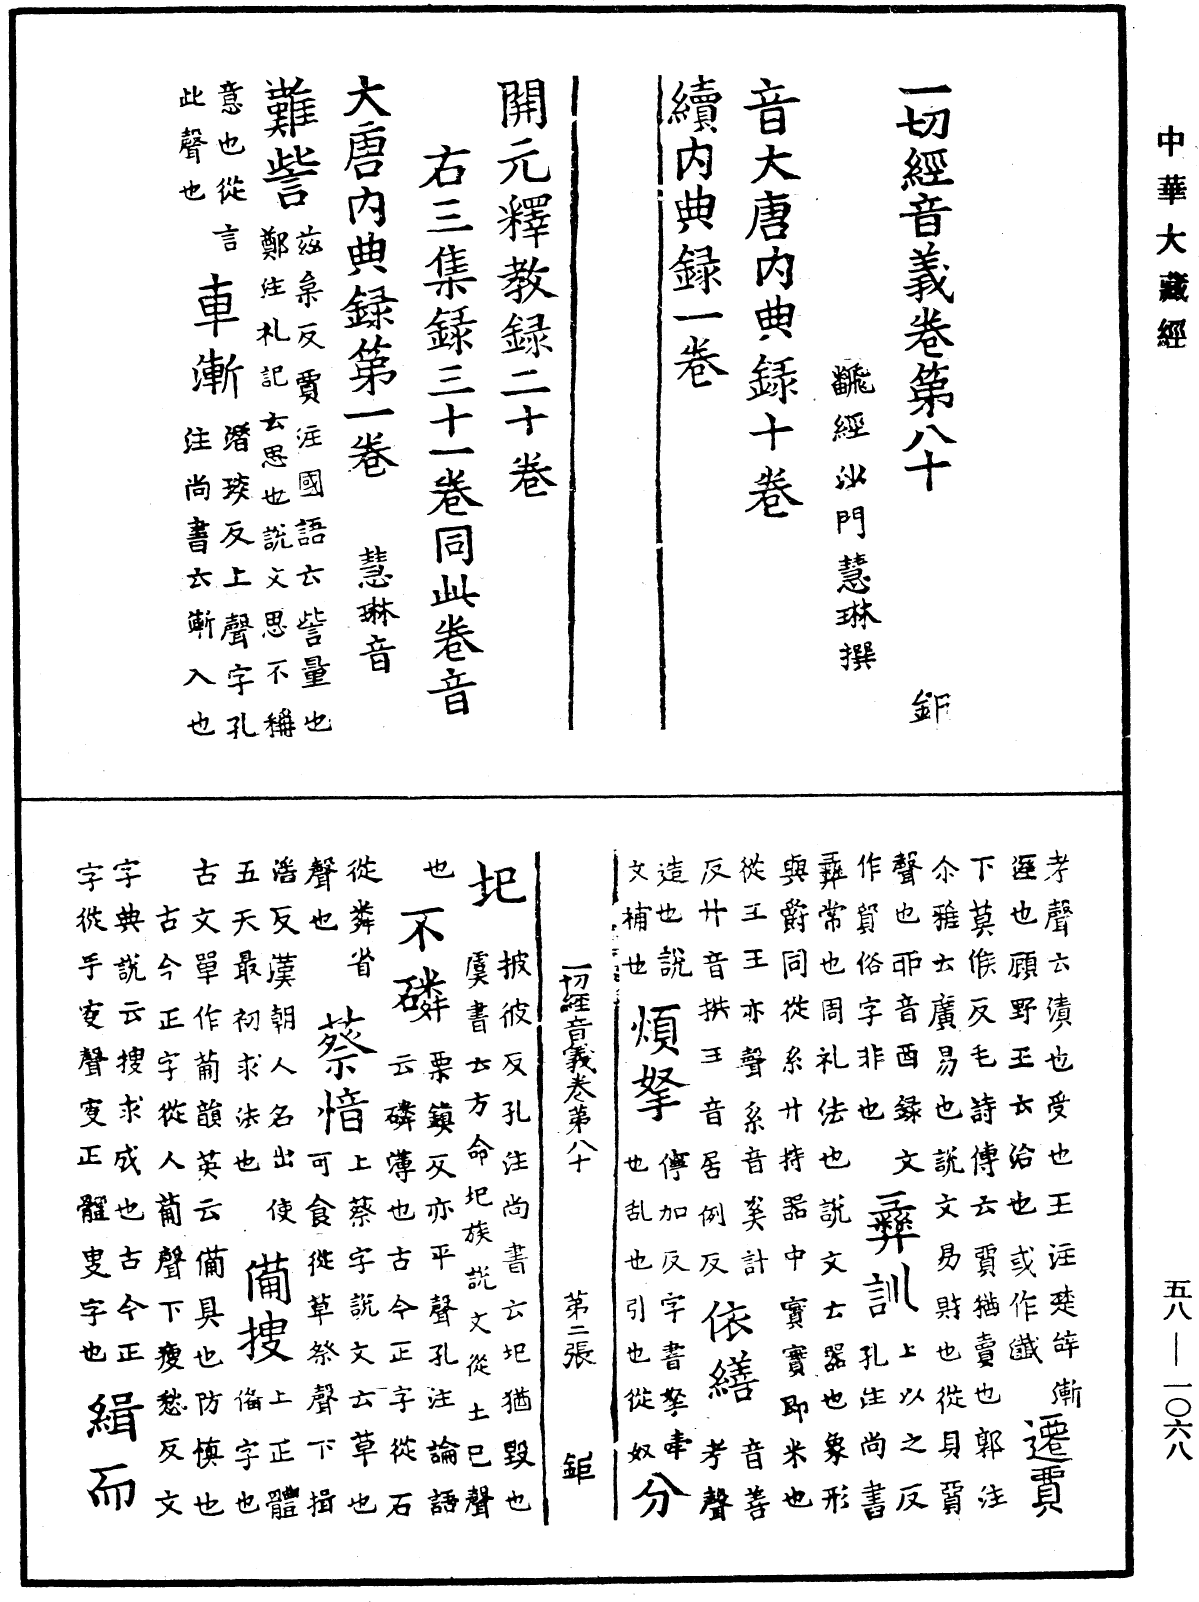 中華大藏經
一切經音義卷第八十 鉅
飜經沙門慧琳撰
音大唐内典録十卷
續内典録一卷
開元釋教録二十卷
右三集録三十一卷同此卷音
大唐内典録第一卷 慧琳音
難訾 茲桒反賈注國語云訾量也
鄭注札記云思也説文思不稱
意也從言
此聲也
車漸 潛琰反上聲字孔
注尚書云漸入也
考聲云漬也受也王注楚辞漸
洷也顧野王云洽也或作瀸
遷賈
下莫候反毛詩傳云賈猶賣也郭注
尒雅云廣易也説文易財也從貝
聲也丣音酉録文
作貿俗字非也
彛訓 上以之反
孔注尚書
彛常也周礼法也説文士器也象形
與爵同從糸廾持器中實實即米也
從王王亦聲糸音奚計
反廾音拱王音居例反
依繕 音善
考聲
造也説
文補也
煩拏 儜加反字書拏牽
也乱也引也從奴
分
一切經音義卷第八十 第二張 鉅
圮 披彼反孔注尚書云圮猶毀也
虞書云方命圮族説文從土巳聲
也
不磷 栗鎮反亦平聲孔注論語
云磷薄也古今正字從石
從粦省
聲也
蔡愔 上蔡字説文云草也
可食從草祭聲下揖
滛反漢朝人名出使
五天最初求法也
備搜 上正體
俻字也
古文單作葡韻英云備具也防慎也
古今正字從人葡聲下瘦愁反文
字典説云搜求成也古今正
字從手叜聲叜正體叟字也
緝而
五八—一〇六八